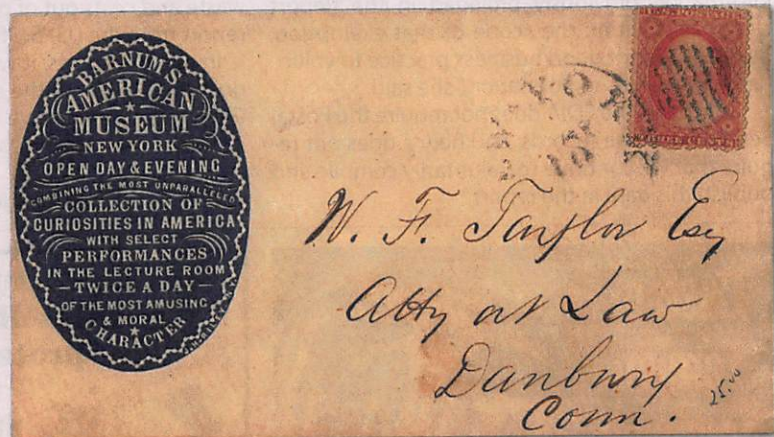 BARNUM'S
AMERICAN
MUSEUM
NEW YORK
OPEN DAY & EVENING
COMBINING THE MOST UNPARALLELED
COLLECTION OF
CURIOSITIES IN AMERICA
WITH SELECT
PERFORMANCES
IN THE LECTURE ROOM
— TWICE A DAY —
OF THE MOST AMUSING
& MORAL
CHARACTER
YORK
10
W. F. Taylor Esq
Atty at Law
Danbury
Conn.
25.00